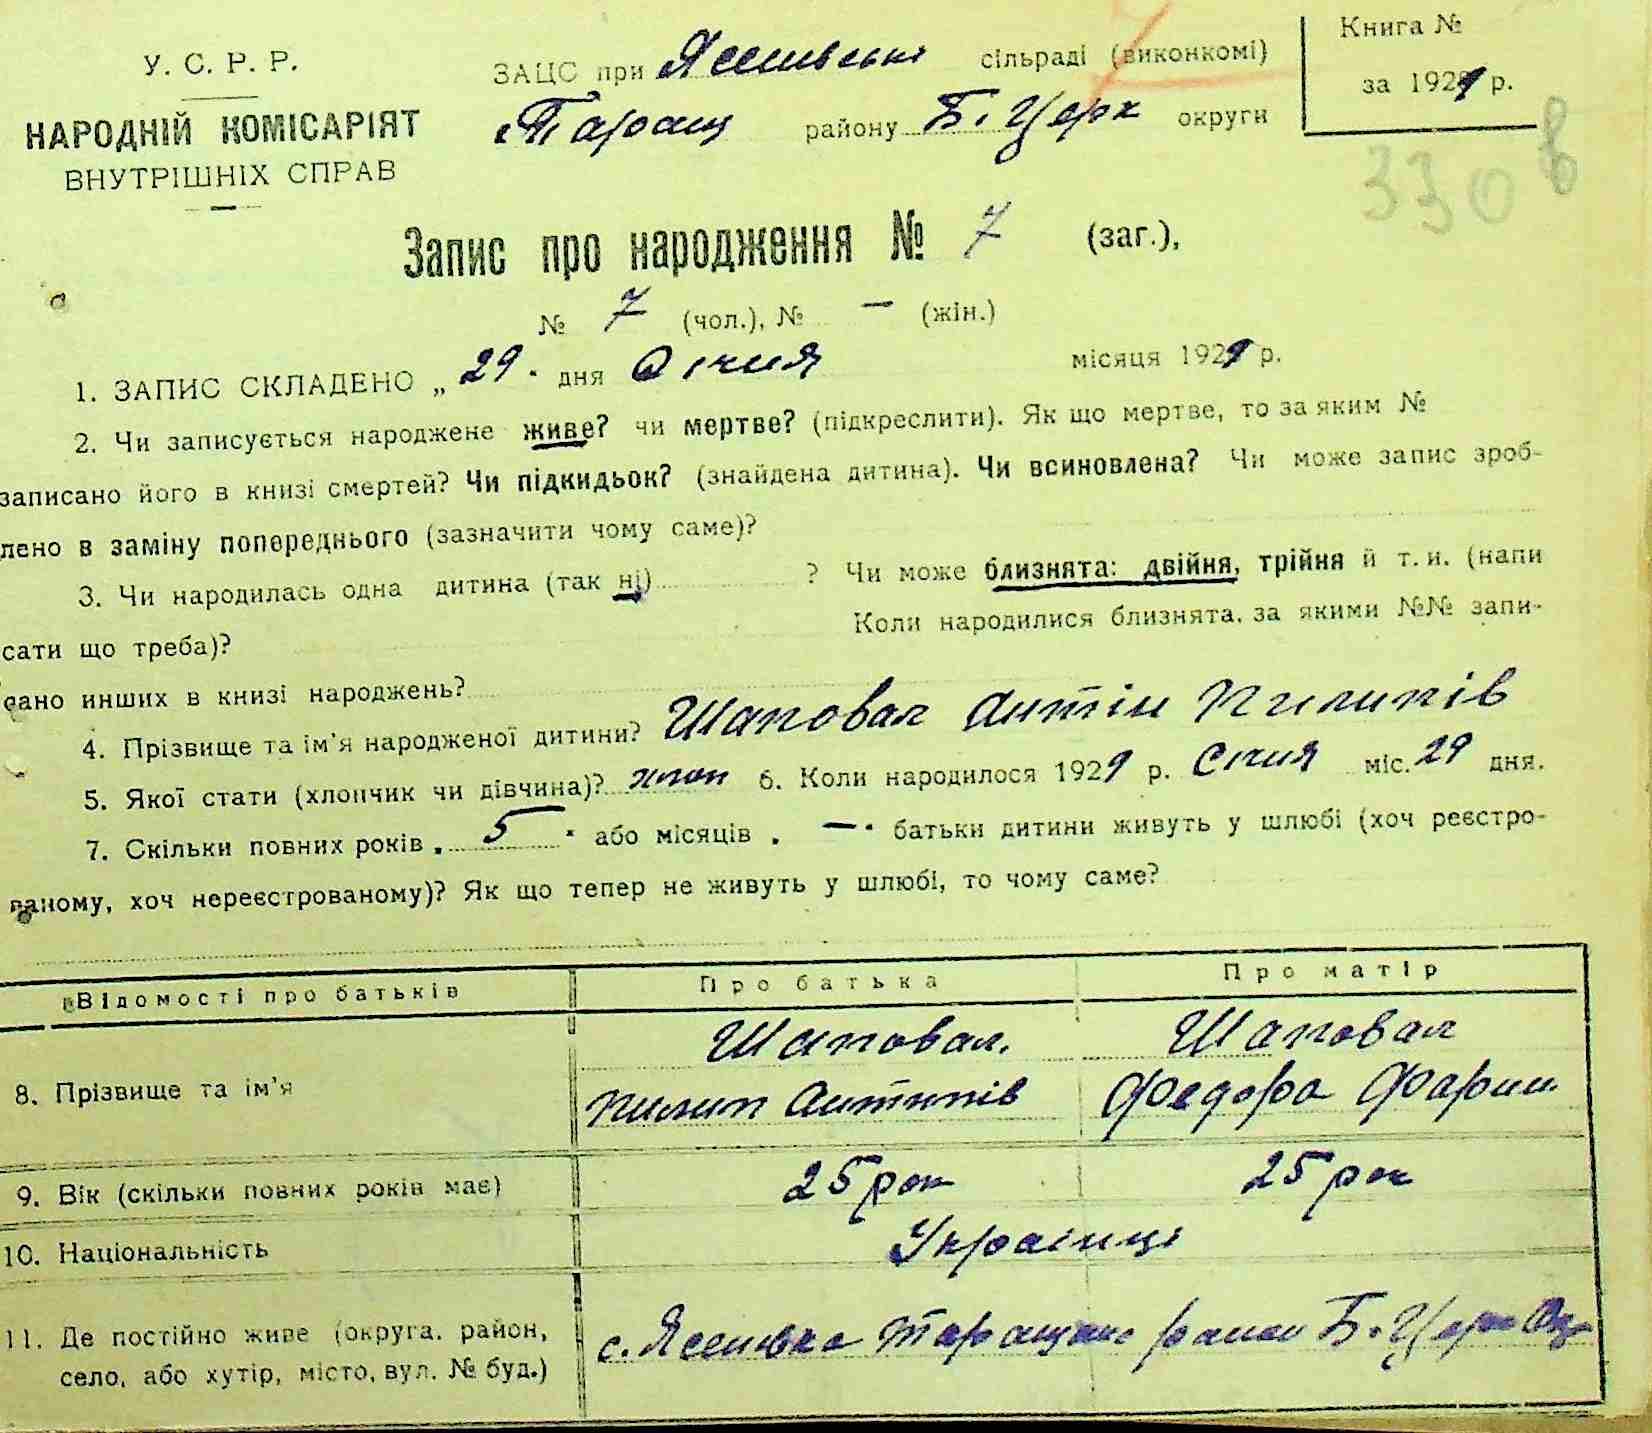 У. С. Р. Р.
НАРОДНІЙ КОМІСАРІЯТ
ВНУТРІШНІХ СПРАВ
ЗАЦС при сільраді (виконкомі)
Таращ району Б. Церк округи
Книга №
за 1929 р.
330 в
Запис про народження № 7 (заг.),
№ 7 (чол.), № — (жін.)
1. ЗАПИС СКЛАДЕНО „ 29 " дня Січня місяця 1929 р.
2. Чи записується народжене живе? чи мертве? (підкреслити). Як що мертве, то за яким №
записано його в книзі смертей? Чи підкидьок? (знайдена дитина). Чи всиновлена? Чи може запис зроб-
лено в заміну попереднього (зазначити чому саме)?
3. Чи народилась одна дитина (так ні) ? Чи може близнята: двійня, трійня й т. и. (напи
сати що треба)? Коли народилися близнята, за якими №№ запи-
сано инших в книзі народжень?
4. Прізвище та ім'я народженої дитини? Шаповал Антін Пилипів
5. Якої стати (хлопчик чи дівчина)? хлоп 6. Коли народилося 1929 р. Січня міс. 29 дня.
7. Скільки повних років „ 5 " або місяців „ — " батьки дитини живуть у шлюбі (хоч реєстро-
ваному, хоч нереєстрованому)? Як що тепер не живуть у шлюбі, то чому саме?
Відомості про батьків Про батька Про матір
8. Прізвище та ім'я
Шаповал. Шаповал
Пилип Антипів Федора
9. Вік (скільки повних років має) 25 рок 25 рок
10. Національність Українці
11. Де постійно живе (округа, район,
село, або хутір, місто, вул. № буд.)
с. району Б. Церк